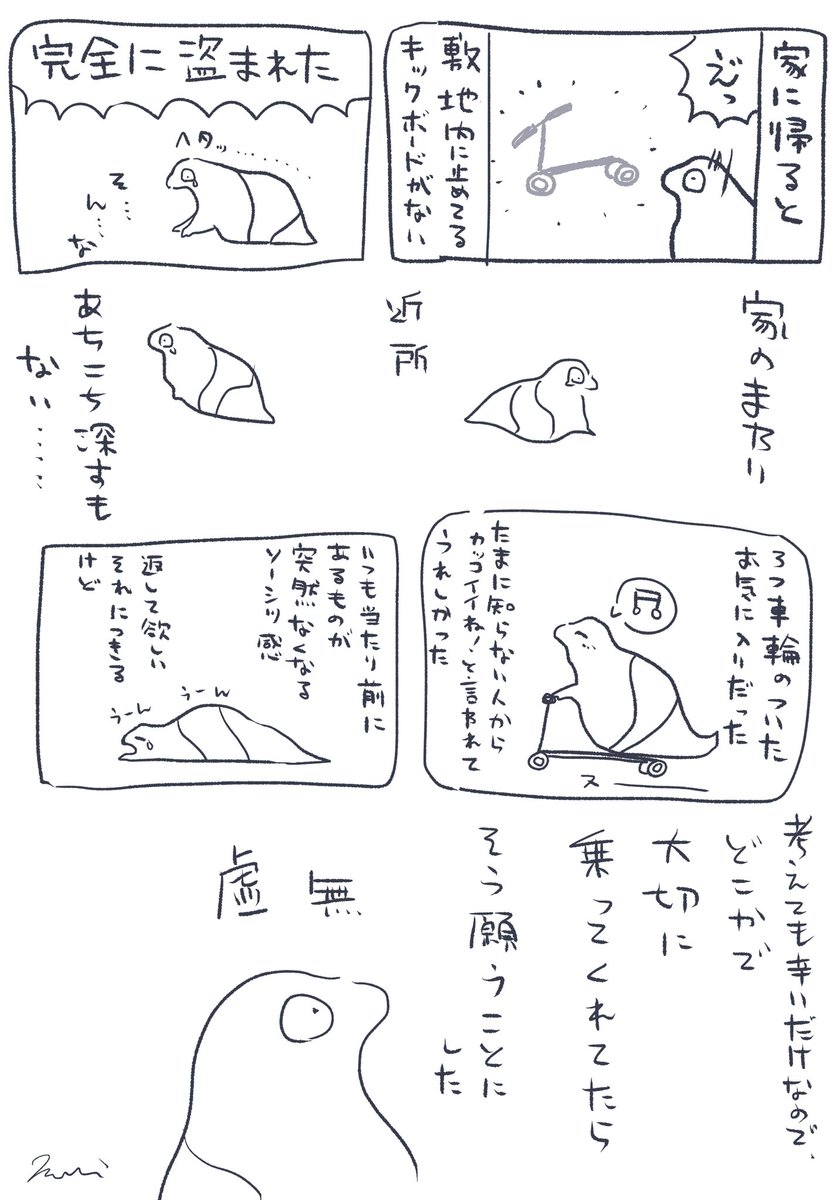 家に帰ると
えっ
敷地内に止めてる
キックボードがない
完全に盗まれた
ヘタッ………
そ…
ん…
な
家のまわり
近所
あちこち深すも
ない……
3つ車輪のついた
お気に入りだった
たまに知らない人から
カッコイイね!と言われて
うれしかった
ス
いつも当たり前に
あるものが
突然なくなる
ソーシツ感
返して欲しい
それにつきる
けど
うーん
うーん
考えても辛いだけなので、
どこかで
大切に
乗ってくれてたら
そう願うことに
した
虚無